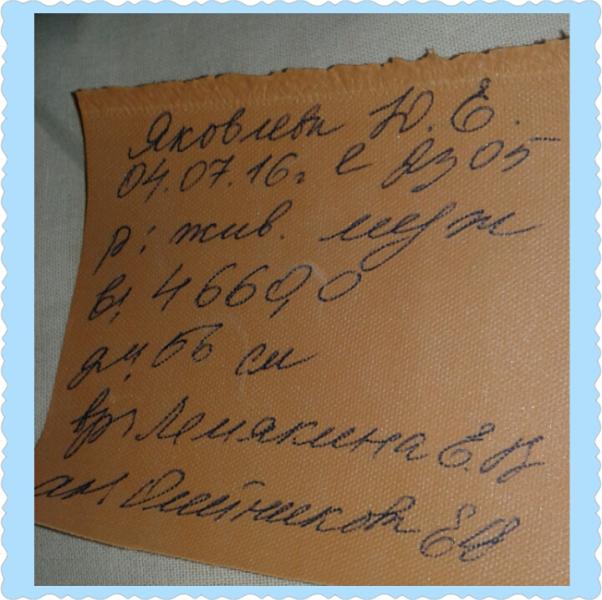 Яковлева Ю. Е.
04.07.16г в 23 05
р: жив. муж
в: 4660,0
дл: 56 см
вр: Лемякина Е.В
ак: Олейникова ЕВ